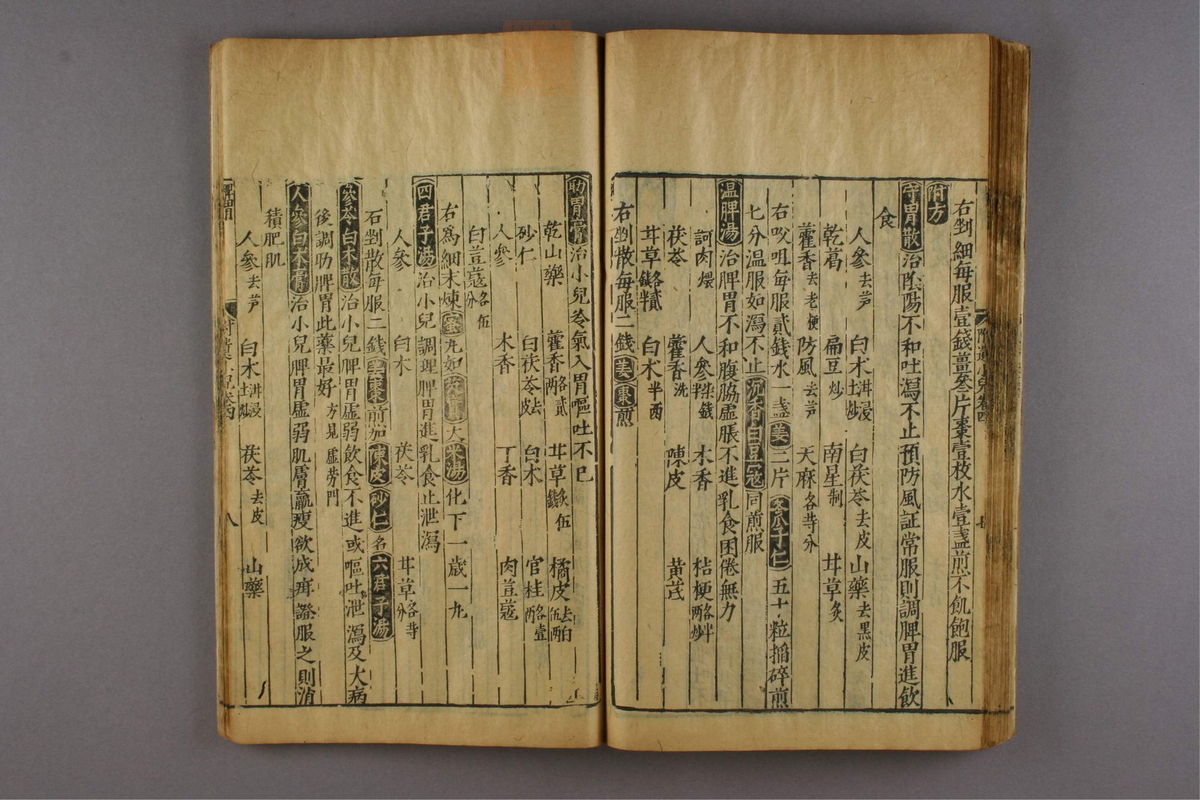 右剉細每服壹錢薑叄片棗壹枚水壹盞煎不飢飽服
附方
守胃散治陰陽不和吐瀉不止預防風証常服則調脾胃進飲
食
人參去芦 白术 白茯苓去皮 山藥去黑皮
乾葛 扁豆炒 南星制 甘草炙
藿香去老梗 防風去芦 天麻各等分
右㕮咀每服貳錢水一盞姜三片冬瓜子仁五十粒搯碎煎
七分温服如瀉不止沉香白豆寇同煎服
温脾湯治脾胃不和腹脇虛脹不進乳食困倦無力
訶肉煨 人參 木香 桔梗
茯苓 藿香洗 陳皮 黄芪
甘草 白术半両
右剉散每服二錢姜棗煎
助胃膏治小兒冷氣入胃嘔吐不已
乾山藥 藿香 甘草 橘皮去白
砂仁 白茯苓 白术 官桂
人參 木香 丁香 肉荳蔻
白荳蔻
右為細末煉蜜丸如芡實大米湯化下一歲一丸
四君子湯治小兒調理脾胃進乳食止泄瀉
人參 白术 茯苓 甘草各等分
右剉散每服二錢姜棗煎加陳皮砂仁名六君子湯
參苓白术散治小兒脾胃虛弱飲食不進或嘔吐泄瀉及大病
後調助脾胃此藥最好方見虛勞門
人參白术膏治小兒脾胃虛弱肌膚羸瘦欲成疳證服之則消
積肥肌
人參去芦 白术 茯苓去皮 山藥
八